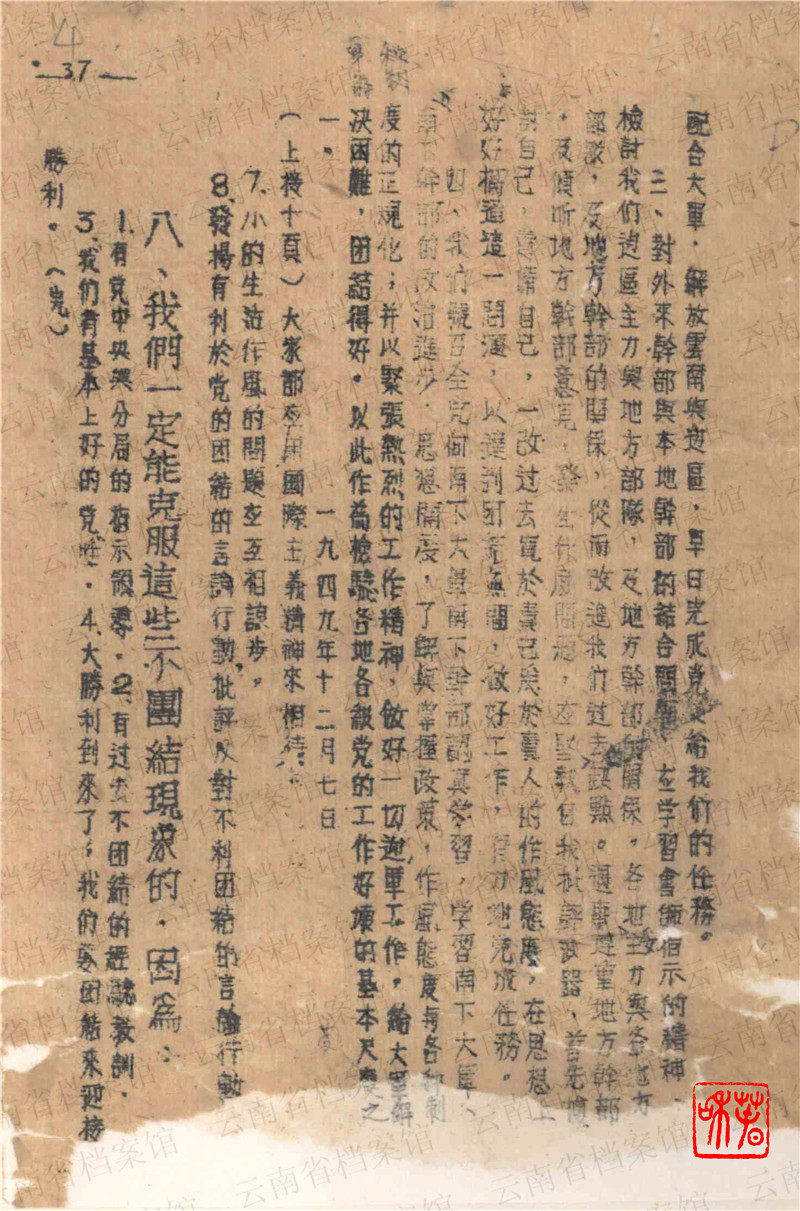 4
37
配合大軍，解放雲南與边區，早日完成党交給我们的任務。
三、對外來幹部與本地幹部的結合問題，在学習會師指示的精神，
檢討我们边區主力與地方部隊，及地方幹部的関係，各地主力與各地方
部隊，及地方幹部的関係，從而改進我们过去缺點。遇事尊重地方幹部
，及傾听地方幹部意見，發生作風問題，应堅執自我批評武器，首先檢
討自己，責備自己，一改过去寬於責己嚴於責人的作風態度，在思想上
好好搞通這一問題，以達到団結無間，做好工作，有力地完成任務。
四、我们號召全党向南下大軍南下幹部認真学習，学習南下大軍、
南下幹部的政治進步，思想開展，了解與掌握政策，作風態度與各種制
度的正規化；并以緊張熱烈的工作精神，做好一切迎軍工作，給大軍解
決困難，団結得好。以此作為檢驗各地各級党的工作好壞的基本尺度之
一。　　一九四九年十二月七日
（上接十頁）大家都应用國際主義精神來相待。
7.小的生活作風的問題应互相諒步。
8.發揚有利於党的団結的言論行動，批評反對不利団結的言論行動
八、我們一定能克服這些不團結現象的，因為：
1.有党中央與分局的指示領導。2.有过去不団結的經驗教訓。
3.我们有基本上好的党性。4.大勝利到來了，我们要団結來迎接
勝利。（完）
云南省档案馆